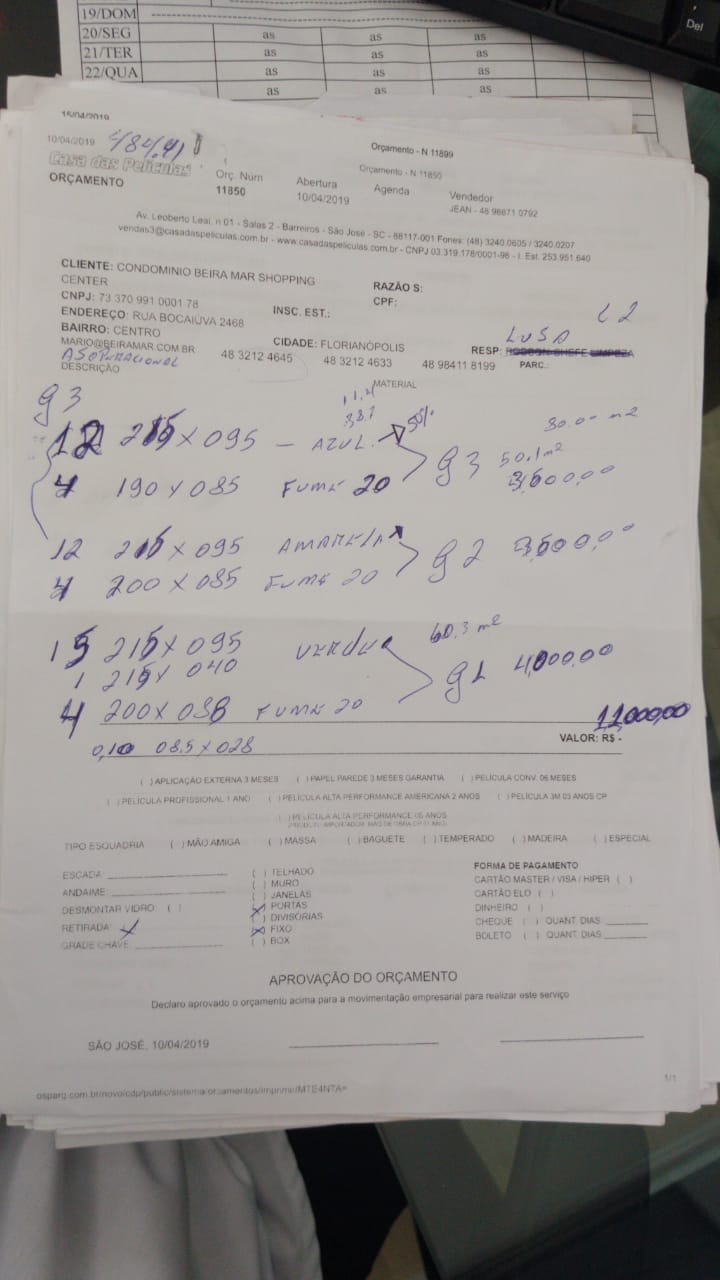 Del
19/DOM
20/SEG as as as
21/TER as as as
22/QUA as as as
as as as
15/04/2019
10/04/2019 484,41
Orçamento - N 11899
Orçamento - N 11850
Casa das Películas
ORÇAMENTO
Orç. Num
11850
Abertura
10/04/2019
Agenda
Vendedor
JEAN - 48 98871 0792
Av. Leoberto Leal, n 01 - Salas 2 - Barreiros - São José - SC - 88117-001 Fones: (48) 3240.0605 / 3240.0207
vendas3@casadaspeliculas.com.br - www.casadaspeliculas.com.br - CNPJ 03.319.178/0001-98 - I. Est. 253.951.640
CLIENTE: CONDOMINIO BEIRA MAR SHOPPING
CENTER
RAZÃO S:
CNPJ: 73 370 991 0001 78
INSC. EST.:
CPF:
ENDEREÇO: RUA BOCAIUVA 2468
BAIRRO: CENTRO
CIDADE: FLORIANÓPOLIS
RESP:
MARIO@BEIRAMAR.COM.BR
48 3212 4645 48 3212 4633 48 98411 8199 PARC.:
DESCRIÇÃO
MATERIAL
g3
12 215 x 095 - AZUL
4 190 x 085 FUMÊ 20 g3 50.1 m2
12 215 x 095 AMARELA
4 200 x 085 FUMÊ 20 g2
15 215 x 095 VERDE 60.3 m2
1 215 x 040 g1 4,000,00
4 200 x 088 FUMÊ 20
11000,00
0,10 085 x 028
VALOR: R$ -
( ) APLICAÇÃO EXTERNA 3 MESES ( ) PAPEL PAREDE 3 MESES GARANTIA ( ) PELÍCULA CONV. 06 MESES
( ) PELÍCULA PROFISSIONAL 1 ANO ( ) PELÍCULA ALTA PERFORMANCE AMERICANA 2 ANOS ( ) PELÍCULA 3M 03 ANOS CP
( ) PELÍCULA ALTA PERFORMANCE 05 ANOS
TIPO ESQUADRIA ( ) MÃO AMIGA ( ) MASSA ( ) BAGUETE ( ) TEMPERADO ( ) MADEIRA ( ) ESPECIAL
ESCADA:
ANDAIME:
DESMONTAR VIDRO: ( )
RETIRADA: x
GRADE CHAVE:
( ) TELHADO
( ) MURO
( ) JANELAS
(x) PORTAS
( ) DIVISÓRIAS
(x) FIXO
( ) BOX
FORMA DE PAGAMENTO
CARTÃO MASTER / VISA / HIPER ( )
CARTÃO ELO ( )
DINHEIRO ( )
CHEQUE ( ) QUANT. DIAS
BOLETO ( ) QUANT. DIAS
APROVAÇÃO DO ORÇAMENTO
Declaro aprovado o orçamento acima para a movimentação empresarial para realizar este serviço
SÃO JOSÉ, 10/04/2019
1/1